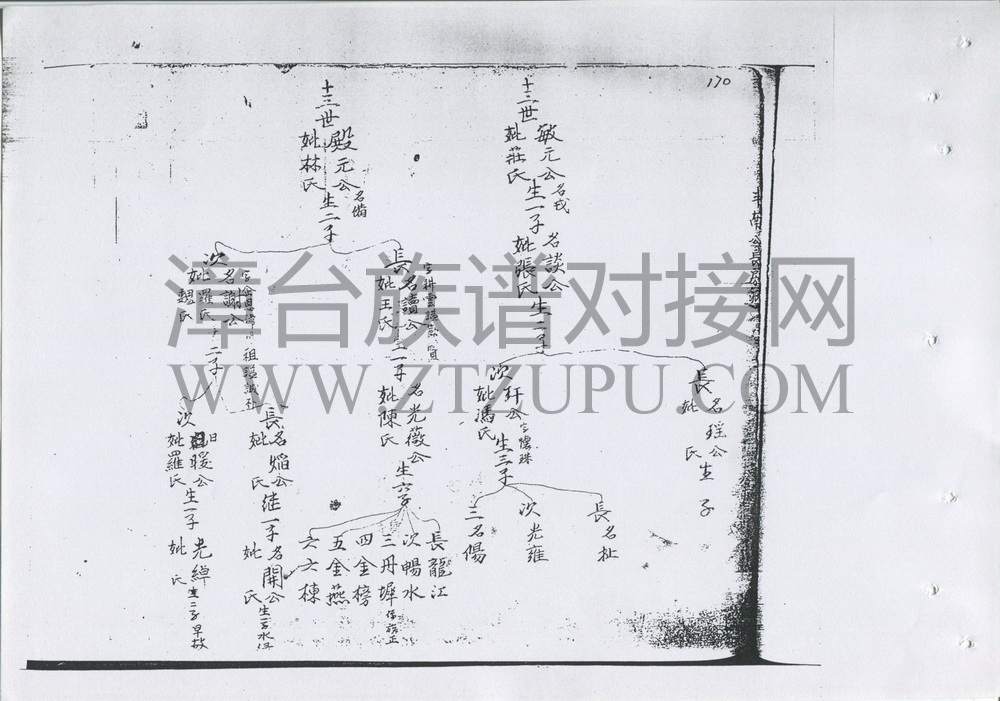 170
十三世
敏元公
名戎
妣莊氏
生一子
名談公
妣張氏
生二子
長
名瑶公
妣 氏
生 子
次
玕公
字懷珠
妣馮氏
生三子
長名址
次光雍
三名陽
十三世
殿元公
名備
妣林氏
生二子
長
名讀公
妣王氏
生一子
名光薇公
妣陳氏
生六子
長龍江
次暢水
三丹墀
四金榜
五金燕
六六棟
次
名謝公
妣羅氏
魏氏
二子
長名焰公
妣 氏
继一子名開公
妣 氏
次
暖公
妣羅氏
生一子
光綽
妣 氏
生二子早故
漳台族谱对接网
WWW.ZTZUPU.COM